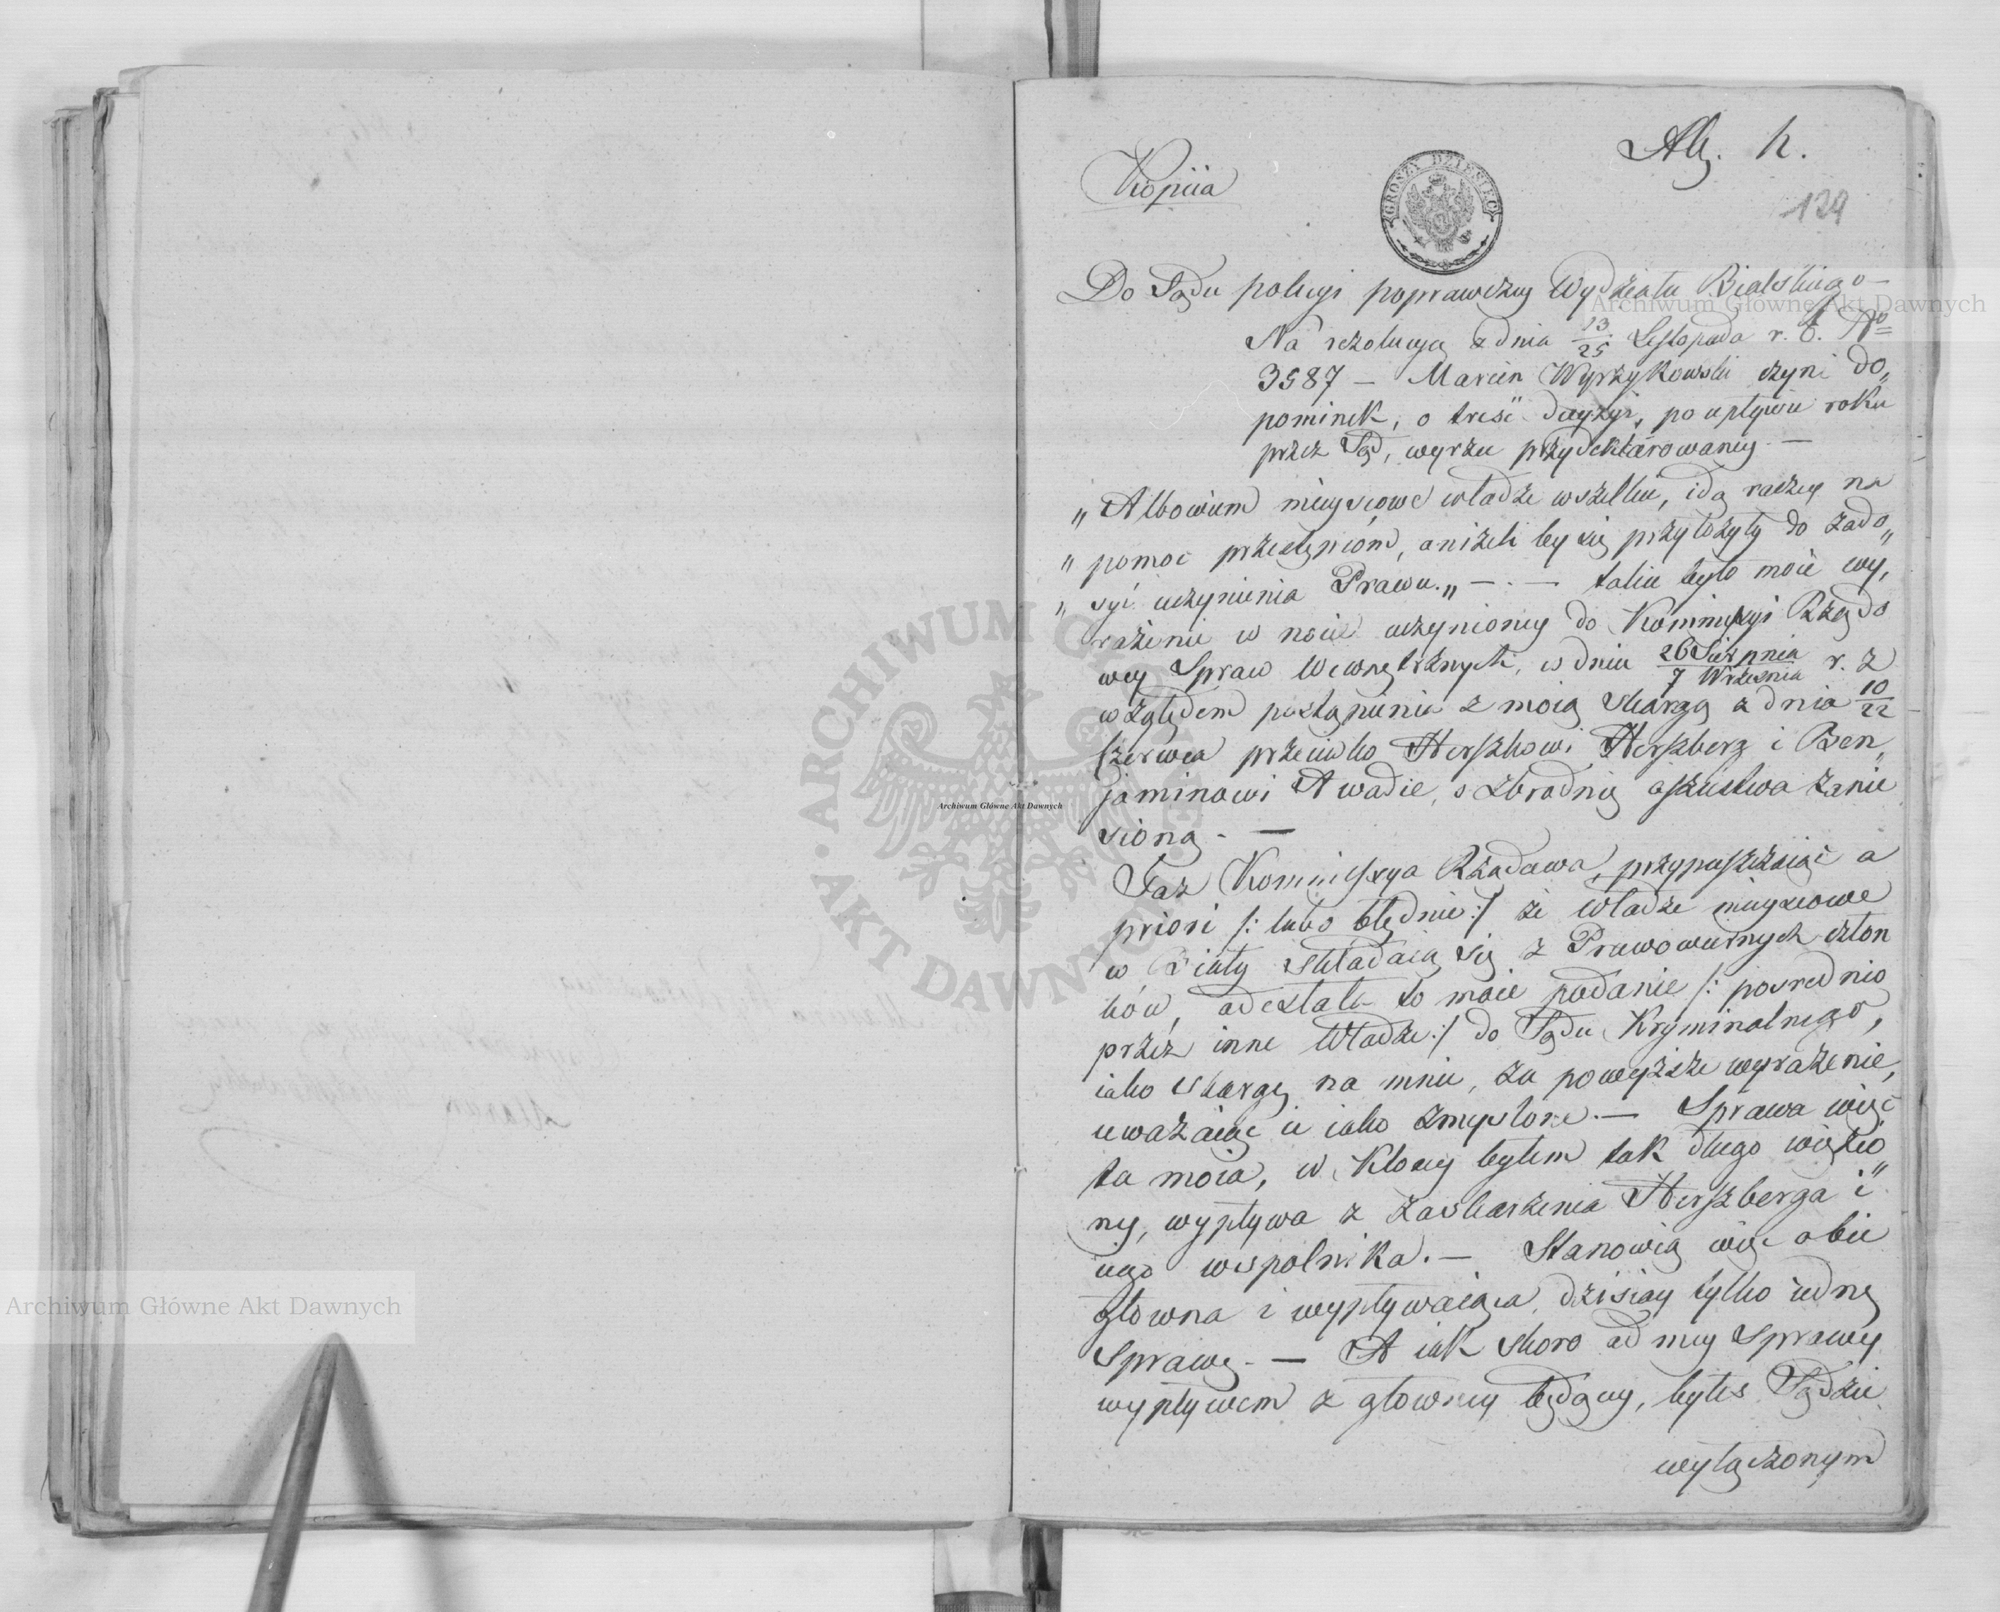 Alg. h.
Kopiia
GROSZY DZIESIĘĆ
139
Do Sądu policyi poprawczey Wydziału Bialskiego —
Na rezolucyą z dnia 13/25 Listopada r. b. No
3587 — Marcin Wyrzykowski czyni do„
pominek, o treść decyzyi, po upływie roku
przez Sąd, wyrzec przydeklarowaney. —
„ Albowiem mieyscowe władze wszelkie, idą raczey na
„ pomoc przestępcóm, aniżeli by się przyłożyły do zado„
„ syć uczynienia Prawu. „ — . — takie było moie wy„
rażenie w nocie uczynioney do Kommissyi Rządo
wey Spraw Wewnętrznych, w dniu 26 Sierpnia/7 Września r. z
względem postąpienia z moią skargą z dnia 10/22
Czerwca przeciwko Herszkowi Herszberg i Ben„
jaminowi Awadie, o zbrodnię oszustwa zanie
sioną. —
Taż Kommissya Rządowa, przypuszczaiąc a
priori /: lubo błędnie :/ że Władze mieyscowe
w Biały składaią się z Prawowiernych człon
ków, odesłała to moie podanie /: posrednio
przez inne Władze :/ do Sądu Kryminalnego,
iako skargę na mnie, za powyższe wyrażenie,
uważaiąc ie iako zmyslone. — Sprawa więc
ta moia, w Ktorey byłem tak długo więzio„
ny, wypływa z zaskarżenia Herszberga i
iego wspolnika. — Stanowią więc obie
głowna i wypływaiąca, dzisiay tylko iedną
Sprawę. — A iak skoro od mey Sprawy
wypływem z głowney będącey, byłes Sądzie
wyłączonym
Archiwum Główne Akt Dawnych
Archiwum Główne Akt Dawnych
Archiwum Główne Akt Dawnych
ARCHIWUM GŁÓWNE AKT DAWNYCH